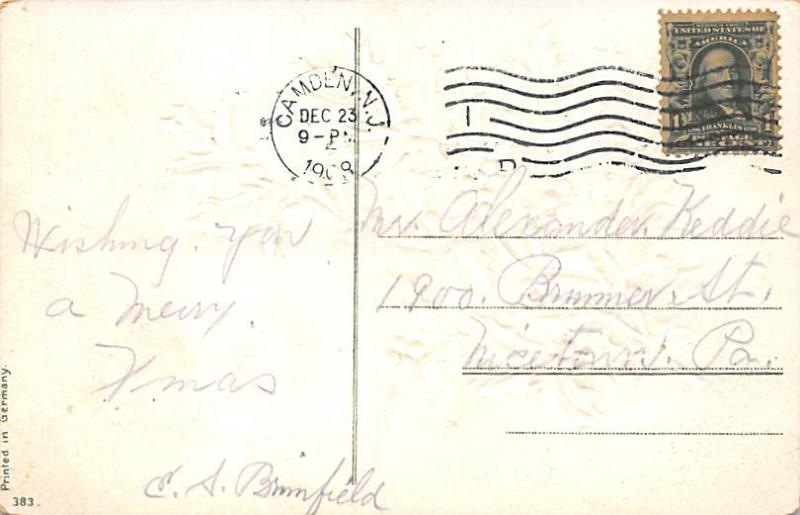 CAMDEN, N.J.
DEC 23
9-PM
1908
UNITED STATES OF
AMERICA
FRANKLIN
Wishing you
a Merry
Xmas
E. S. Brimfield
Mr. Alexander Keddie
1900. Brunner St.
Nicetown. Pa.
Printed in Germany.
383.